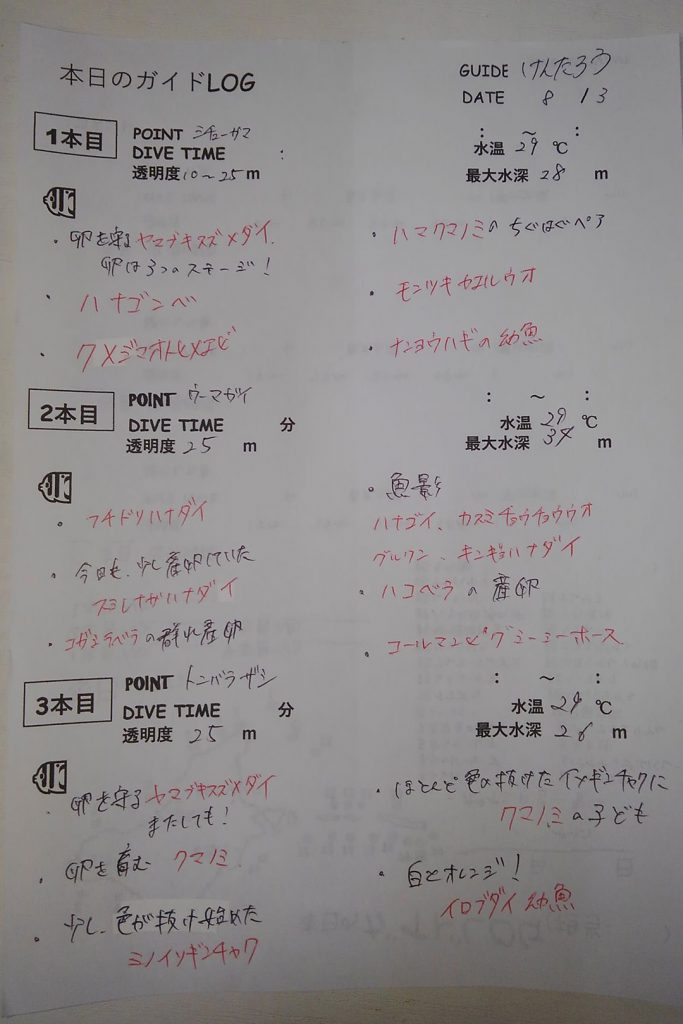 本日のガイドLOG
GUIDE けんたろう
DATE 8 13
1本目
POINT ミチューガマ
DIVE TIME :
透明度 10～25 m
: ～ :
水温 29 ℃
最大水深 28 m
・卵を守る ヤマブキスズメダイ.
卵は3つのステージ!
・ハナゴンベ
・クメジマオトヒメエビ
・ハマクマノミのちぐはぐペア
・モンツキカエルウオ
・ナンヨウハギの幼魚
2本目
POINT ウーマガイ
DIVE TIME 分
透明度 25 m
: ～ :
水温 29 ℃
最大水深 34 m
・フチドリハナダイ
・今日も、少し産卵していた
スミレナガハナダイ
・コガシラベラの群れ産卵
・魚影
ハナゴイ、カスミチョウチョウウオ
グルクン、キンギョハナダイ
・ハコベラの産卵
・コールマンピグミーシーホース
3本目
POINT トンバラザシ
DIVE TIME 分
透明度 25 m
: ～ :
水温 29 ℃
最大水深 26 m
・卵を守る ヤマブキスズメダイ
またしても!
・卵を育む クマノミ
・少し、色が抜け始めた
ミノイソギンチャク
・ほとんど色の抜けたイソギンチャクに
クマノミの子ども
・白とオレンジ!
イロブダイ幼魚